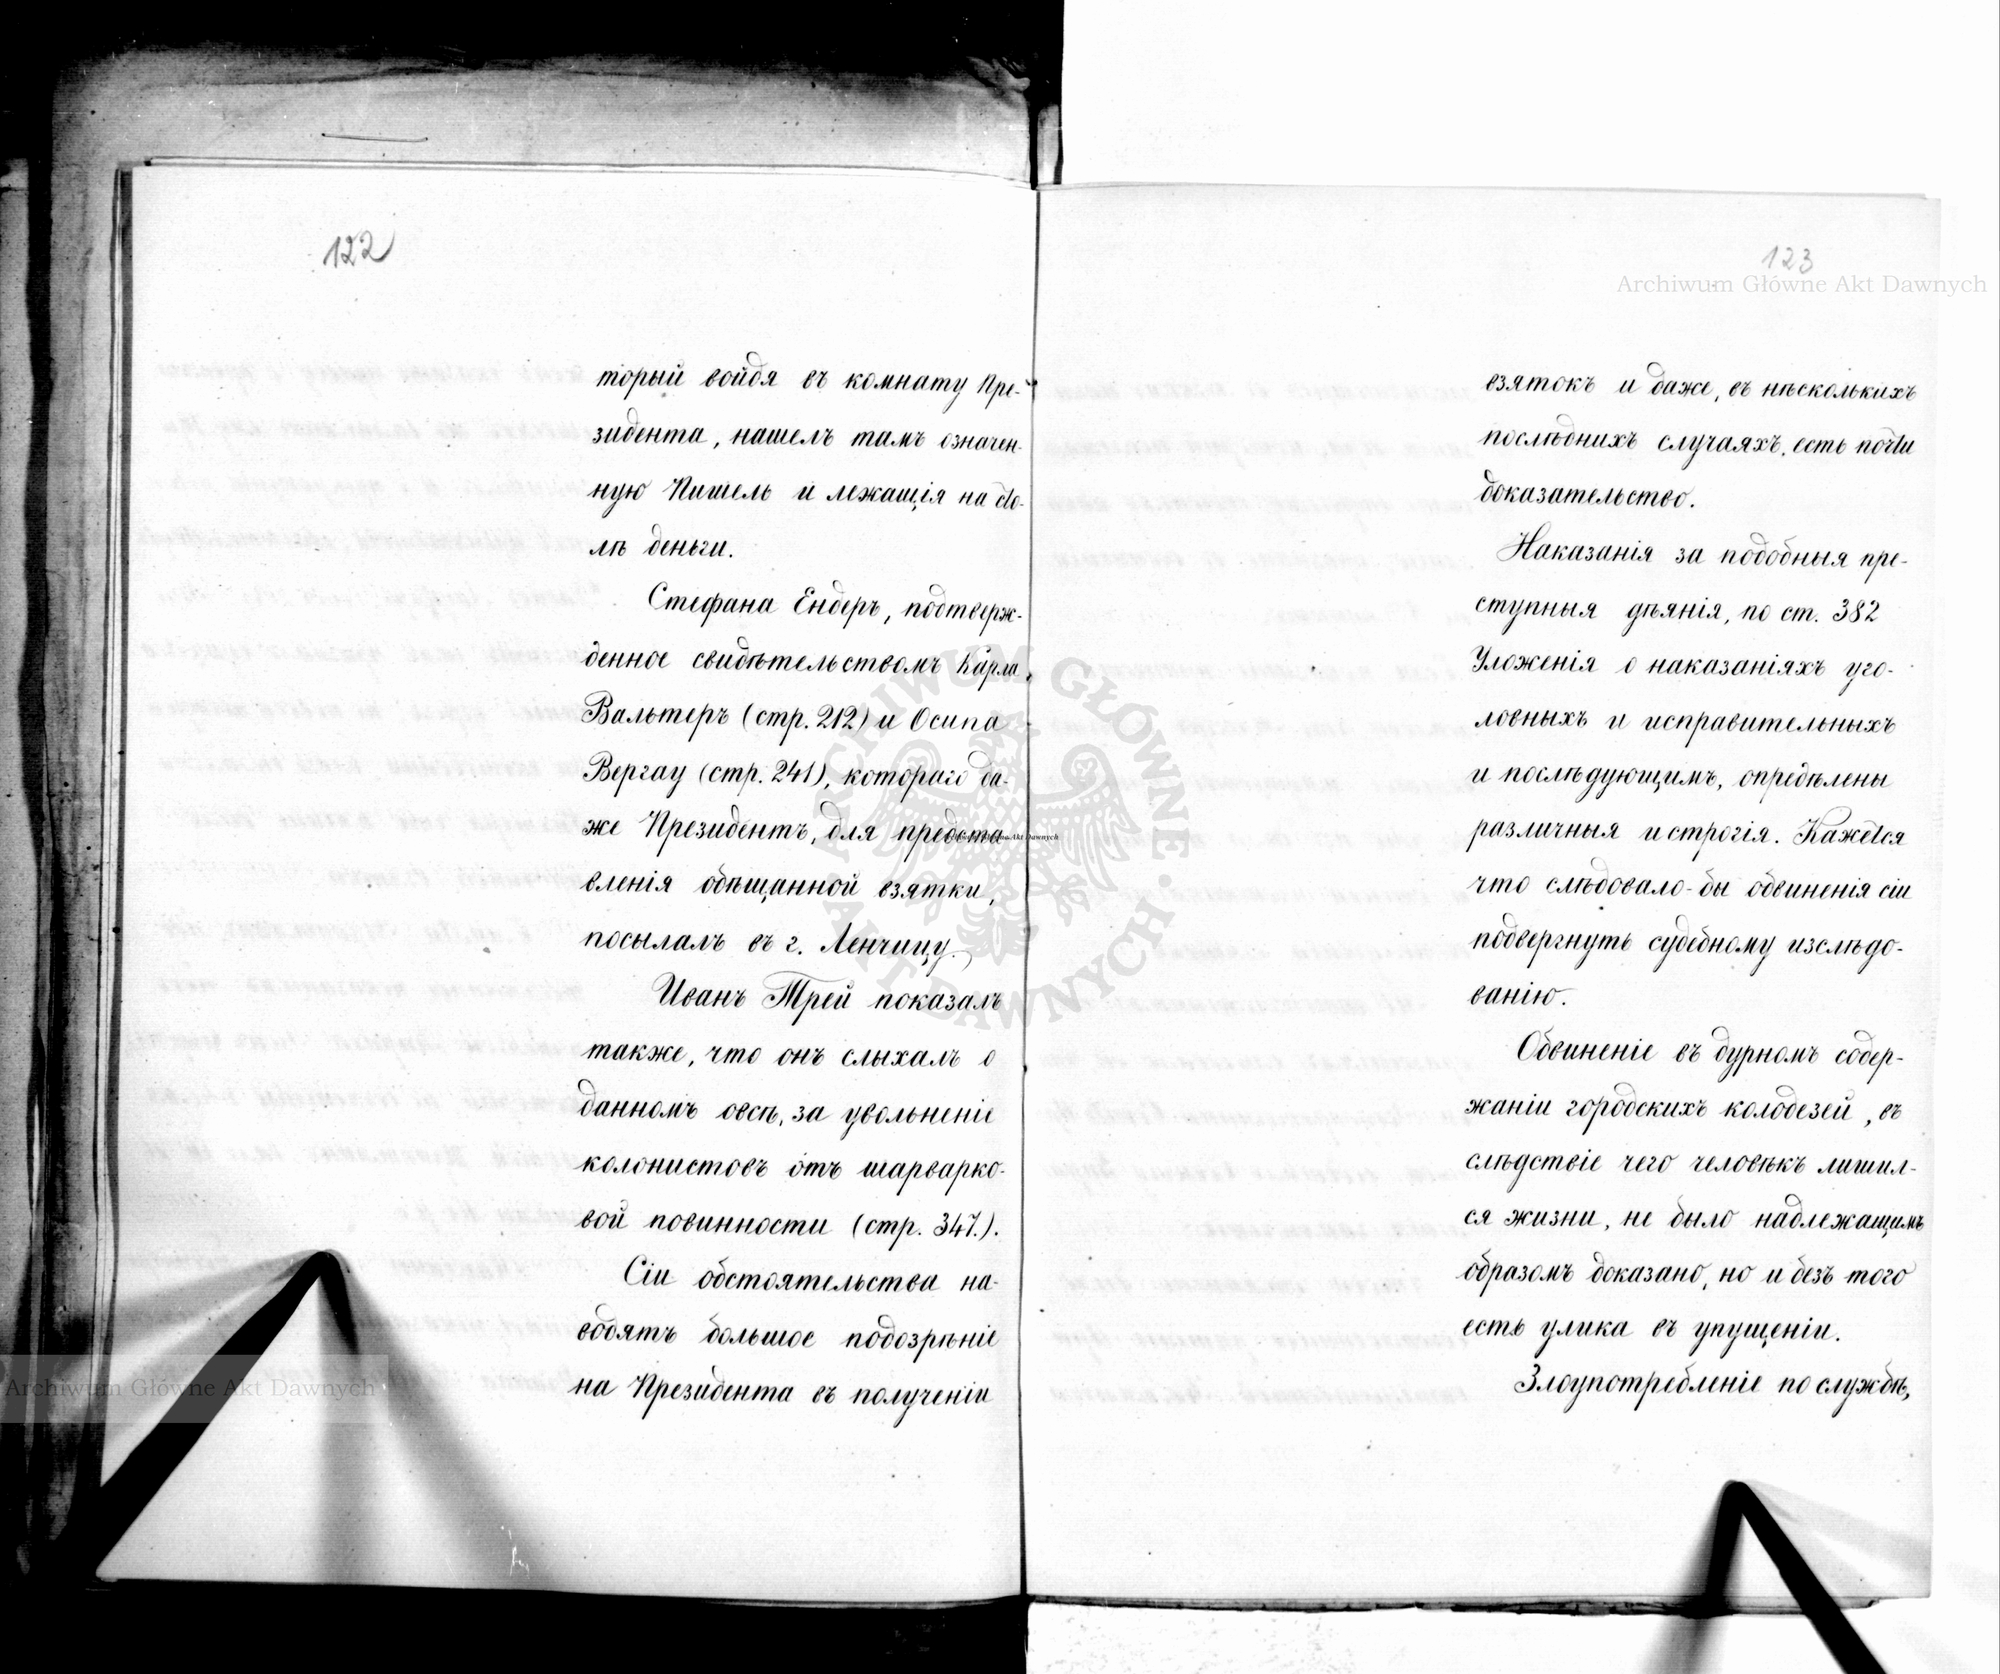 122
торый войдя въ комнату Пре-
зидента, нашелъ тамъ означен-
ную Пишель и лежащія на сто-
лѣ деньги.
Стефана Ендеръ, подтверж-
денное свидѣтельствомъ Карла
Вальтеръ (стр. 212) и Осипа
Вергау (стр. 241), котораго да-
же Президентъ, для предста-
вленія обѣщанной взятки,
посылалъ въ г. Ленчицу.
Иванъ Трей показалъ
также, что онъ слыхалъ о
данномъ овсѣ, за увольненіе
колонистовъ отъ шарварко-
вой повинности (стр. 347.).
Сіи обстоятельства на-
водятъ большое подозрѣніе
на Президента въ полученіи
123
Archiwum Główne Akt Dawnych
взятокъ и даже, въ нѣсколькихъ
послѣднихъ случаяхъ, есть почти
доказательство.
Наказанія за подобныя пре-
ступныя дѣянія, по ст. 382
Уложенія о наказаніяхъ уго-
ловныхъ и исправительныхъ
и послѣдующимъ, опредѣлены
различныя и строгія. Кажется
что слѣдовало-бы обвиненія сіи
подвергнуть судебному изслѣдо-
ванію.
Обвиненіе въ дурномъ содер-
жаніи городскихъ колодезей, въ
слѣдствіе чего человѣкъ лишил-
ся жизни, не было надлежащимъ
образомъ доказано, но и безъ того
есть улика въ упущеніи.
Злоупотребленіе по службѣ,
ARCHIWUM GŁÓWNE AKT DAWNYCH
Archiwum Główne Akt Dawnych
Archiwum Główne Akt Dawnych